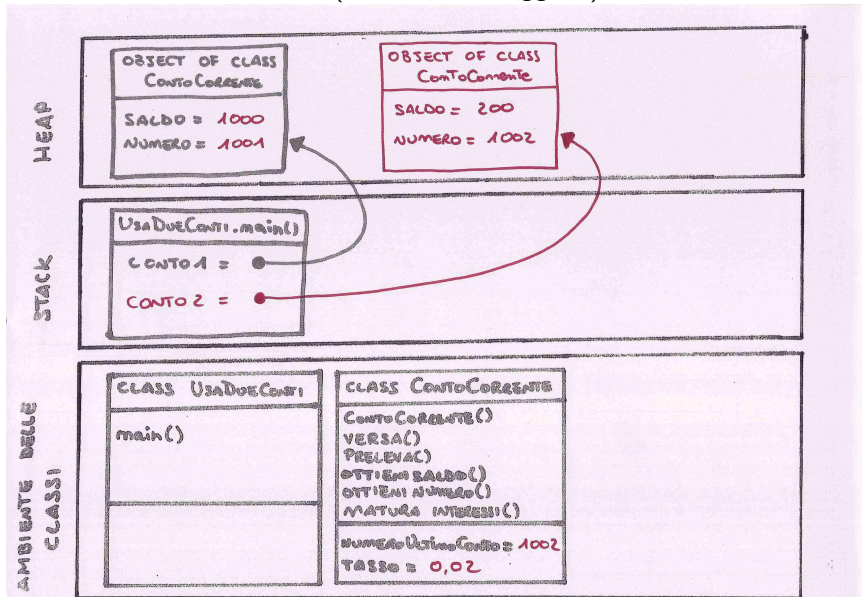 HEAP
OBJECT OF CLASS
CONTO CORRENTE
SALDO = 1000
NUMERO = 1001
OBJECT OF CLASS
ConToCorrenTe
SALDO = 200
NUMERO = 1002
STACK
USADUECONTI.main()
CONTO1 =
CONTO2 =
AMBIENTE DELLE
CLASSI
CLASS USADUECONTI
main()
CLASS CONTOCORRENTE
CONTOCORRENTE()
VERSA()
PRELEVA()
OTTIENI SALDO()
OTTIENI NUMERO()
MATURA INTERESSI()
NUMEROULTIMOCONTO = 1002
TASSO = 0,02